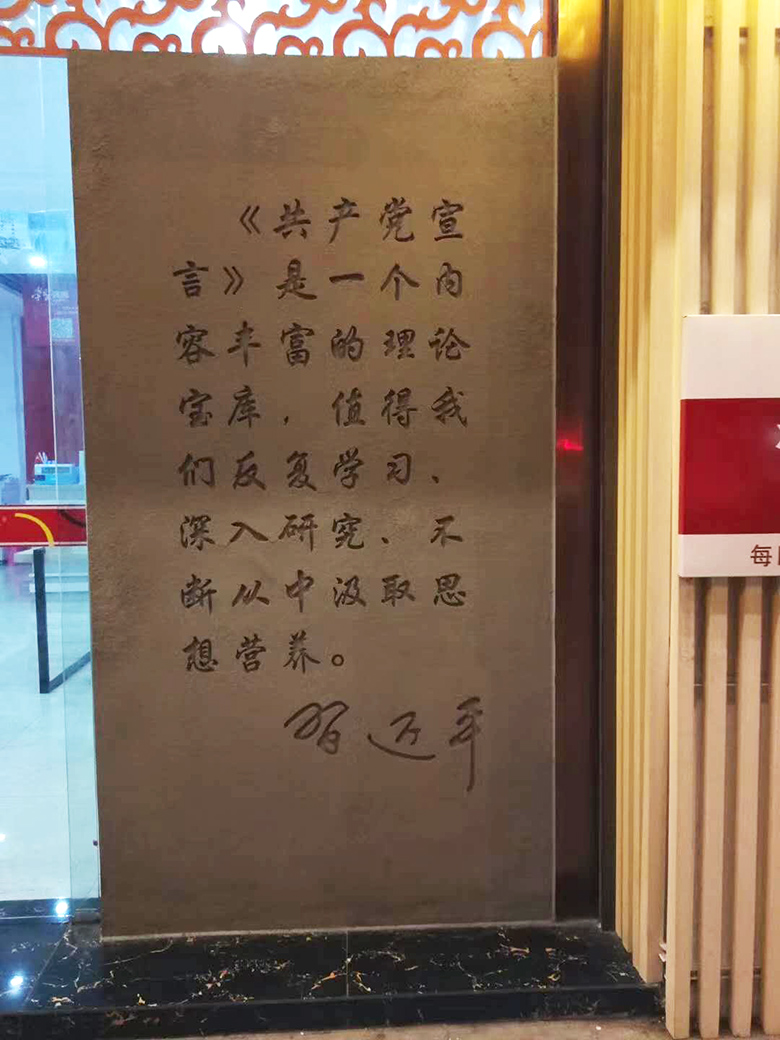 《共产党宣
言》是一个内
容丰富的理论
宝库，值得我
们反复学习、
深入研究、不
断从中汲取思
想营养。
习近平
每